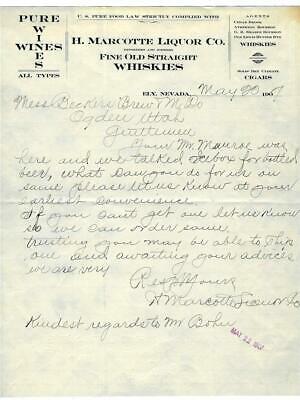 PURE
WINES
ALL TYPES
U. S. PURE FOOD LAW STRICTLY COMPLIED WITH
H. MARCOTTE LIQUOR CO.
IMPORTERS AND JOBBERS
FINE OLD STRAIGHT
WHISKIES
AGENTS
CEDAR BROOK
ATHERTON BOURBON
O. F. C.
WHISKIES
CIGARS
ELY, NEVADA, May 20 1907
Mess Beckers Brew & M Co
Ogden Utah
Gentlemen
Your Mr. Munroe was
here and we talked Icebox for bottled
beer, What can you do for us on
same please let us know at your
earliest convenience.
If you cant get one let us know
so we can order some
trusting you may be able to ship
one and awaiting your advices
we are very
Resp Yours
H Marcotte Liquor Co
Kindest regards to Mr Bohn
MAY 22 1907